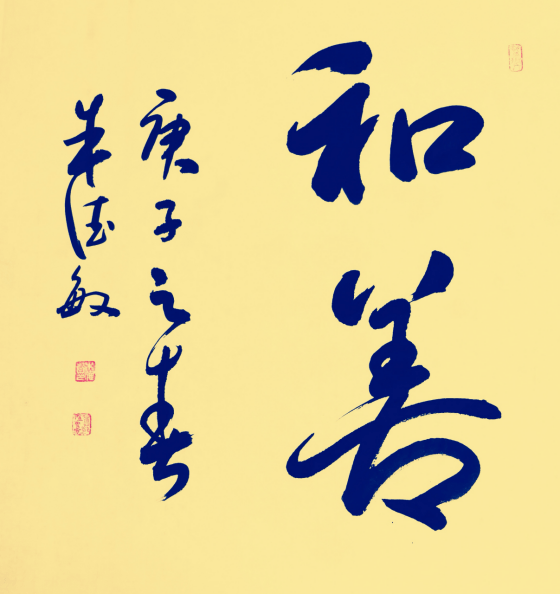 和善
庚子之春
朱德敏